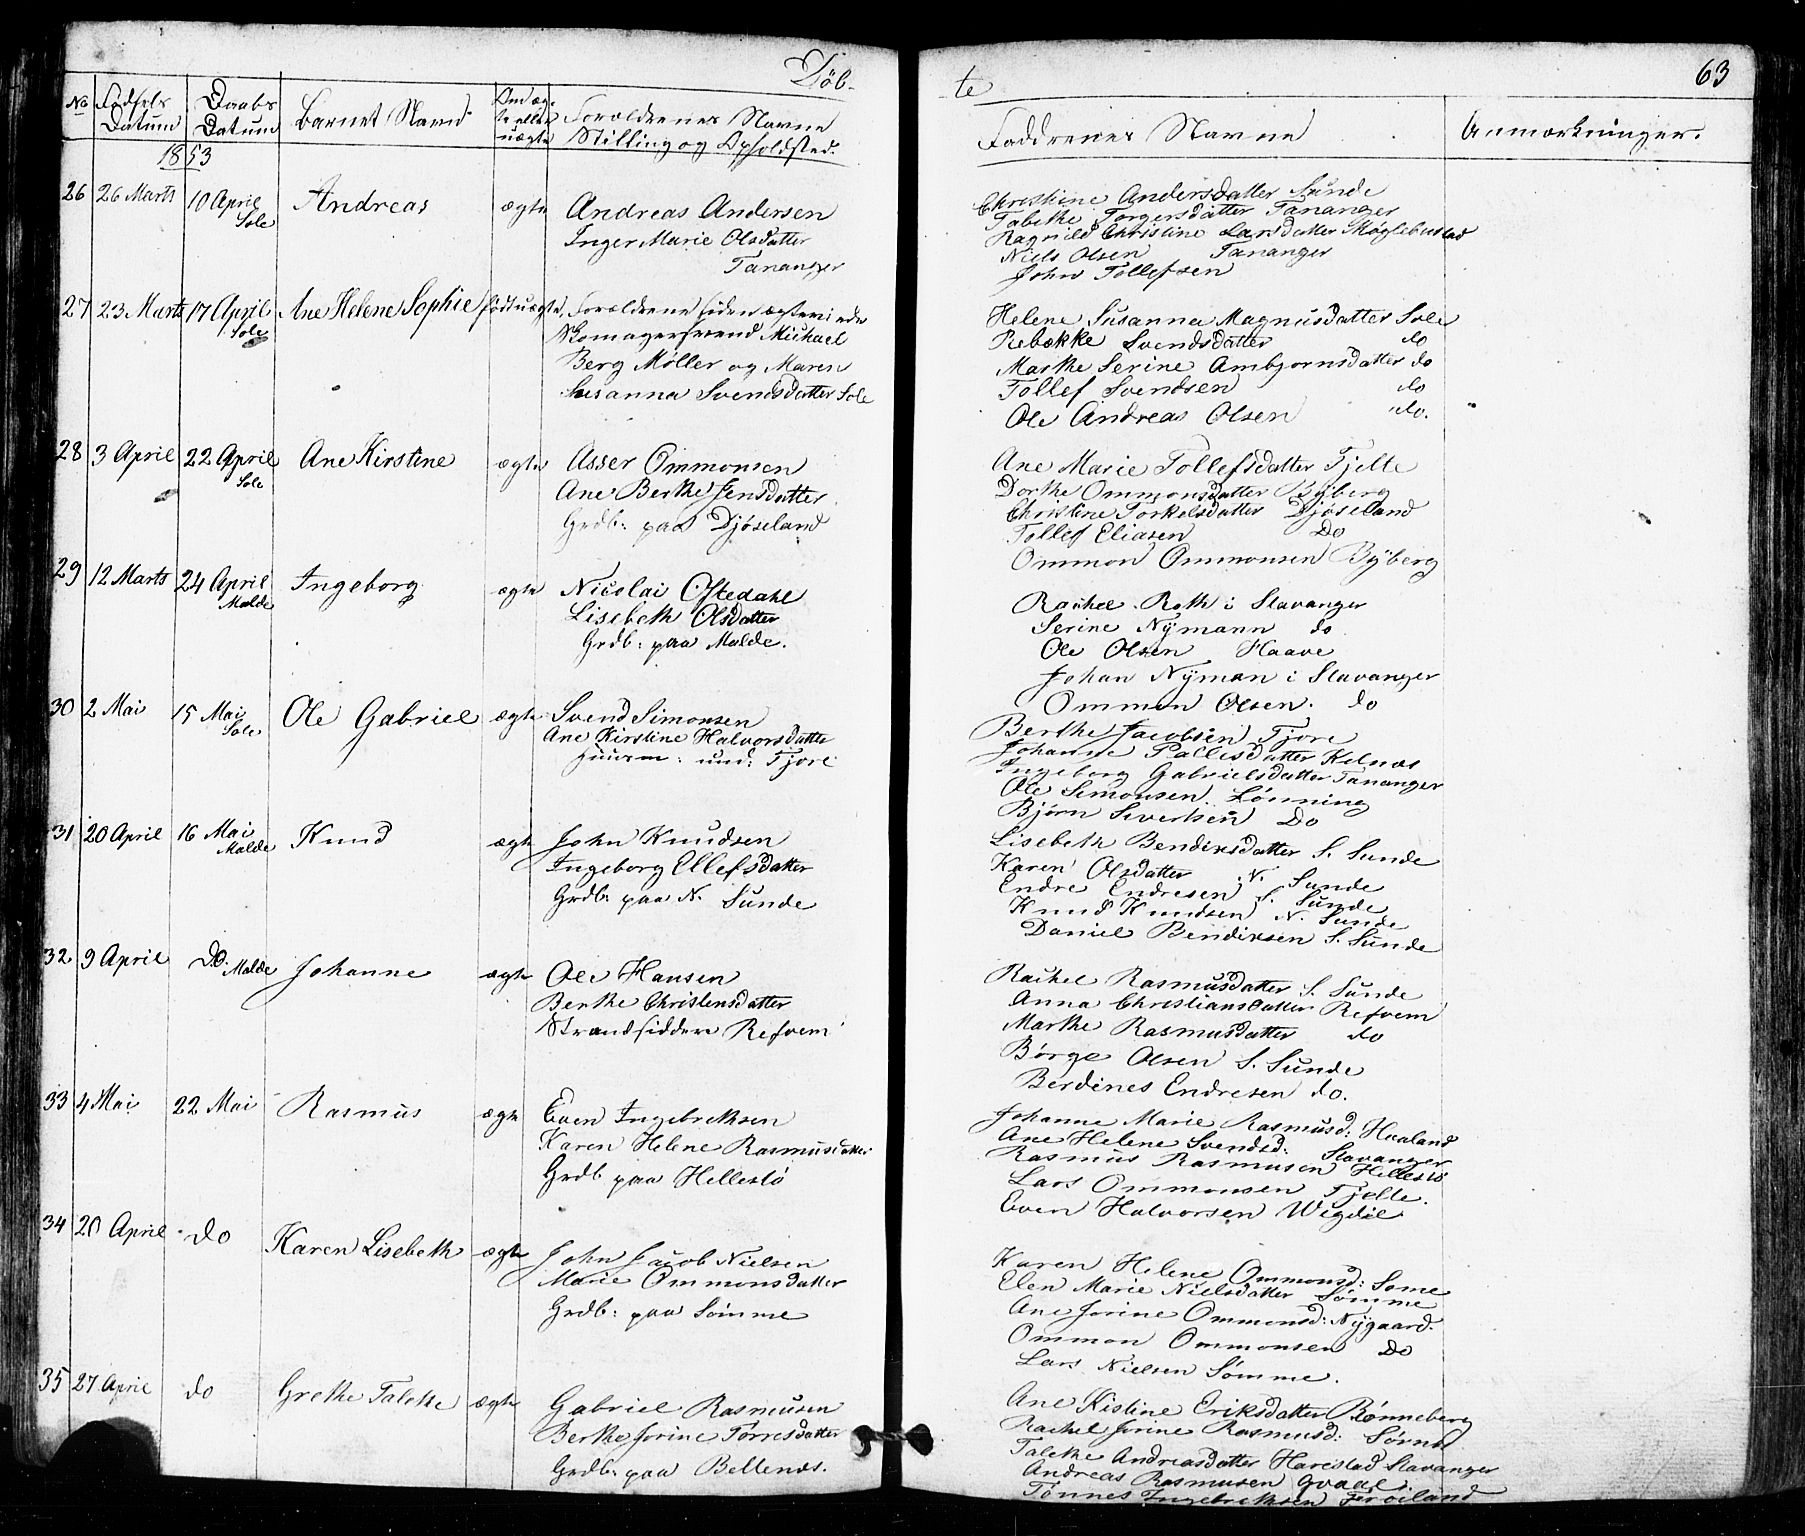 Døb-
te
63
No Fødsels Datum Daabs Datum Barnet Navn Om æg- te eller uægte Forældrenes Navne Stilling og Opholdsted.
Faddrenes Navne
Anmærkninger.
1853
26 26 Marts 10 April Sole Andreas ægte Andreas Andersen
Inger Marie Olsdatter
Tananger
Christine Andersdatter Sunde
Tabethe Torgersdatter Tananger
Ragnild Christine Larsdatter Møglebustad
Niels Olsen Tananger
John Tollefsen
27 23 Marts 17 April Sole Ane Helene Sophie født uægte Forældrene siden ægteviede
Skomagersvend Michael
Berg Møller og Maren
Susanna Svendsdatter Sole
Helene Susanna Magnusdatter Sole
Rebække Svendsdatter do
Marthe Serine Ambjornsdatter do
Tollef Svendsen do
Ole Andreas Olsen do.
28 3 April 22 April Sole Ane Kirstine ægte Asser Ommonsen
Ane Berthe Jensdatter
Grdb: paa Djøseland
Ane Marie Tollefsdatter Tjelte
Dorthe Ommonsdatter Byberg
Christine Torkelsdatter Djøseland
Tollef Eliasen Do
Ommon Ommonsen Byberg
29 12 Marts 24 April Malde Ingeborg ægte Nicolai Oftedahl
Lisebeth Olsdatter
Grdb: paa Malde.
Rachel Roth i Stavanger
Serine Nÿmann do
Ole Olsen Haave
Johan Nÿman i Stavanger
Ommon Olsen. do
30 2 Mai 15 Mai Sole Ole Gabriel ægte Svend Simonsen
Ane Kirstine Halvorsdatter
Huusm: und: Tjore
Berthe Jacobsen Tjore
Johanne Pallisdatter Kelnæs
Ingeborg Gabrielsdatter Tananger
Ole Simonsen Lønning
Bjørn Sivertsen Do
31 20 April 16 Mai Malde Knud ægte John Knudsen
Ingeborg Ellefsdatter
Grdb: paa N. Sunde
Lisebeth Bendixsdatter S. Sunde
Karen Olsdatter N. Sunde
Endre Endresen S. Sunde
Knud Knudsen N. Sunde
Daniel Bendixsen S. Sunde
32 9 April Do. Malde Johanne ægte Ole Hansen
Berthe Christensdatter
Strandsiddere Refvem
Rachel Rasmusdatter S. Sunde
Anna Christiansdatter Refvem
Marthe Rasmusdatter do
Børge Olsen S. Sunde
Berdines Endresen do.
33 4 Mai 22 Mai Rasmus ægte Even Ingebrethsen
Karen Helene Rasmusdatter
Grdb paa Hellestø
Johanne Marie Rasmusd: Haaland
Ane Helene Svendsd: Stavanger
Rasmus Rasmusen Hellestø
Lars Ommonsen Tjelte.
Even Halvorsen Wigdel
34 20 April do Karen Lisebeth ægte John Jacob Nielsen
Marie Ommonsdatter
Grdb: paa Sømme
Karen Helene Ommonsd: Some
Elen Marie Nielsdatter Sømme
Ane Jorine Ommonsd: Nÿgaard.
Ommon Ommonsen Do
Lars Nielsen Sømme.
35 27 April do Grethe Talethe ægte Gabriel Rasmusen
Berthe Jorine Torresdatter
Grdb: paa Bellenæs.
Ane Kistine Eriksdatter Rønneberg
Rachel Jorine Rasmusd: Sørnæs
Talethe Andreasdatter Harestad Stavanger
Andreas Rasmusen Qvaal.
Tønnes Ingebrethsen Frøiland